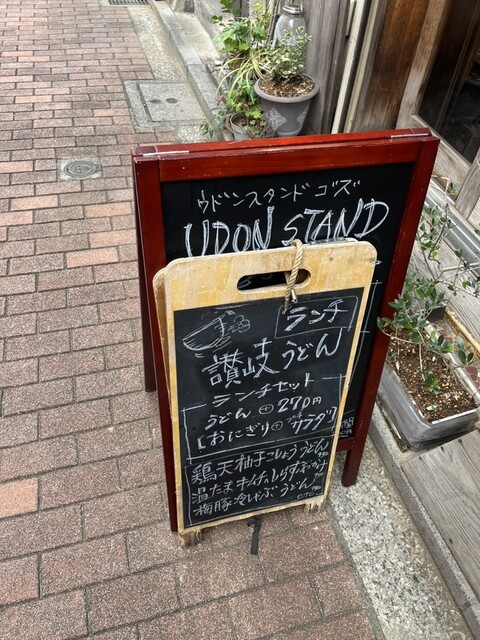 ウドンスタンド ゴズ
UDON STAND
ランチ
讃岐うどん
ランチセット
うどん ⊕ 270円
[おにぎり⊕プチサラダ]
鶏天柚子こしょううどん
温たまキムチのしらすぶっかけ
梅豚冷しゃぶうどん etc.